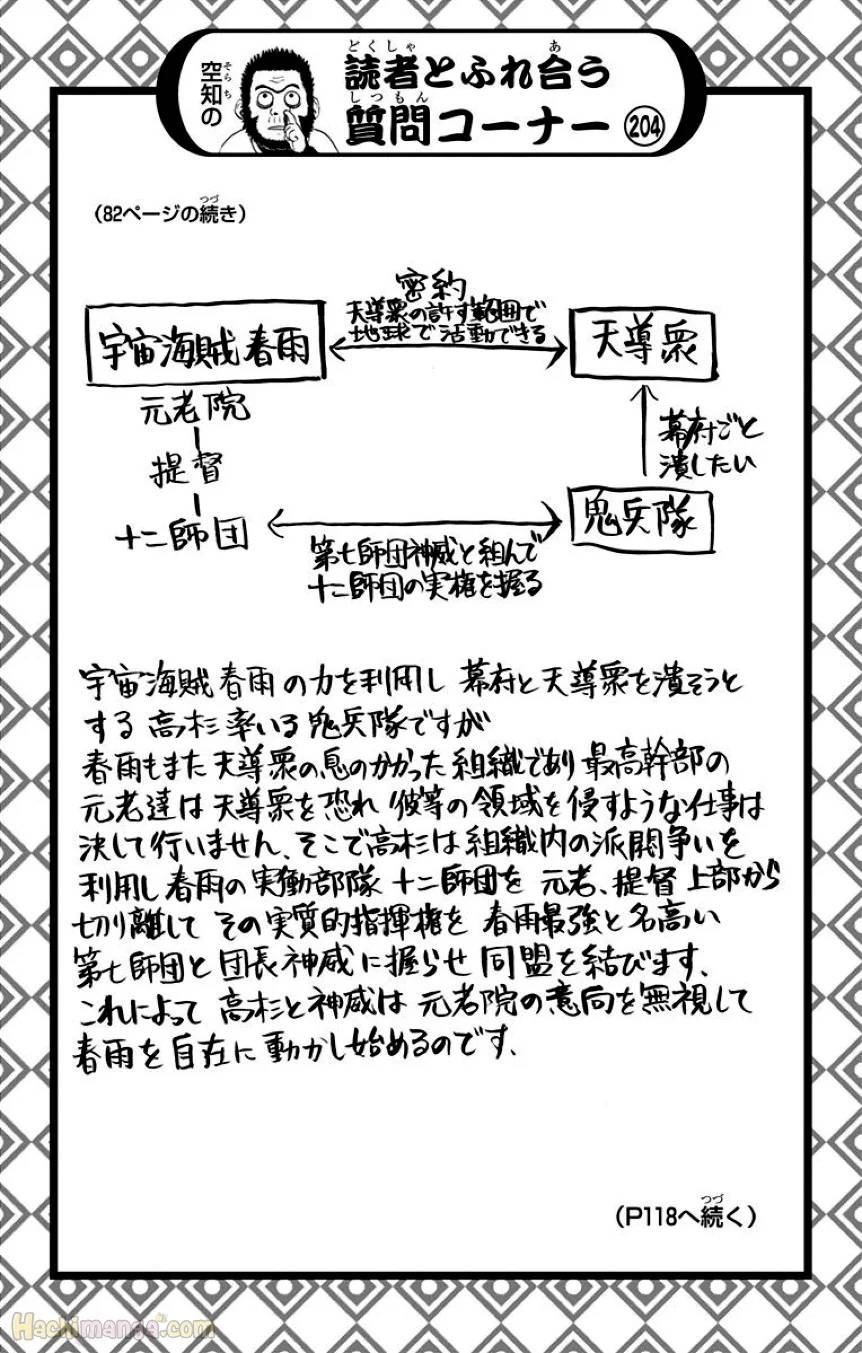 空知の
読者とふれ合う
質問コーナー 204
(82ページの続き)
密約
天導衆の許す範囲で
地球で活動できる
宇宙海賊春雨
天導衆
元老院
提督
十二師団
幕府ごと
潰したい
鬼兵隊
第七師団神威と組んで
十二師団の実権を握る
宇宙海賊春雨の力を利用し 幕府と天導衆を潰そうと
する 高杉率いる鬼兵隊ですが
春雨もまた 天導衆の息のかかった組織であり 最高幹部の
元老達は 天導衆を恐れ 彼等の領域を侵すような仕事は
決して行いません、そこで高杉は 組織内の派閥争いを
利用し 春雨の実働部隊 十二師団を 元老、提督 上部から
切り離して その実質的指揮権を 春雨最強と名高い
第七師団と団長神威に握らせ 同盟を結びます、
これによって 高杉と神威は 元老院の意向を無視して
春雨を自在に動かし始めるのです、
(P118へ続く)
Hachimanga.com